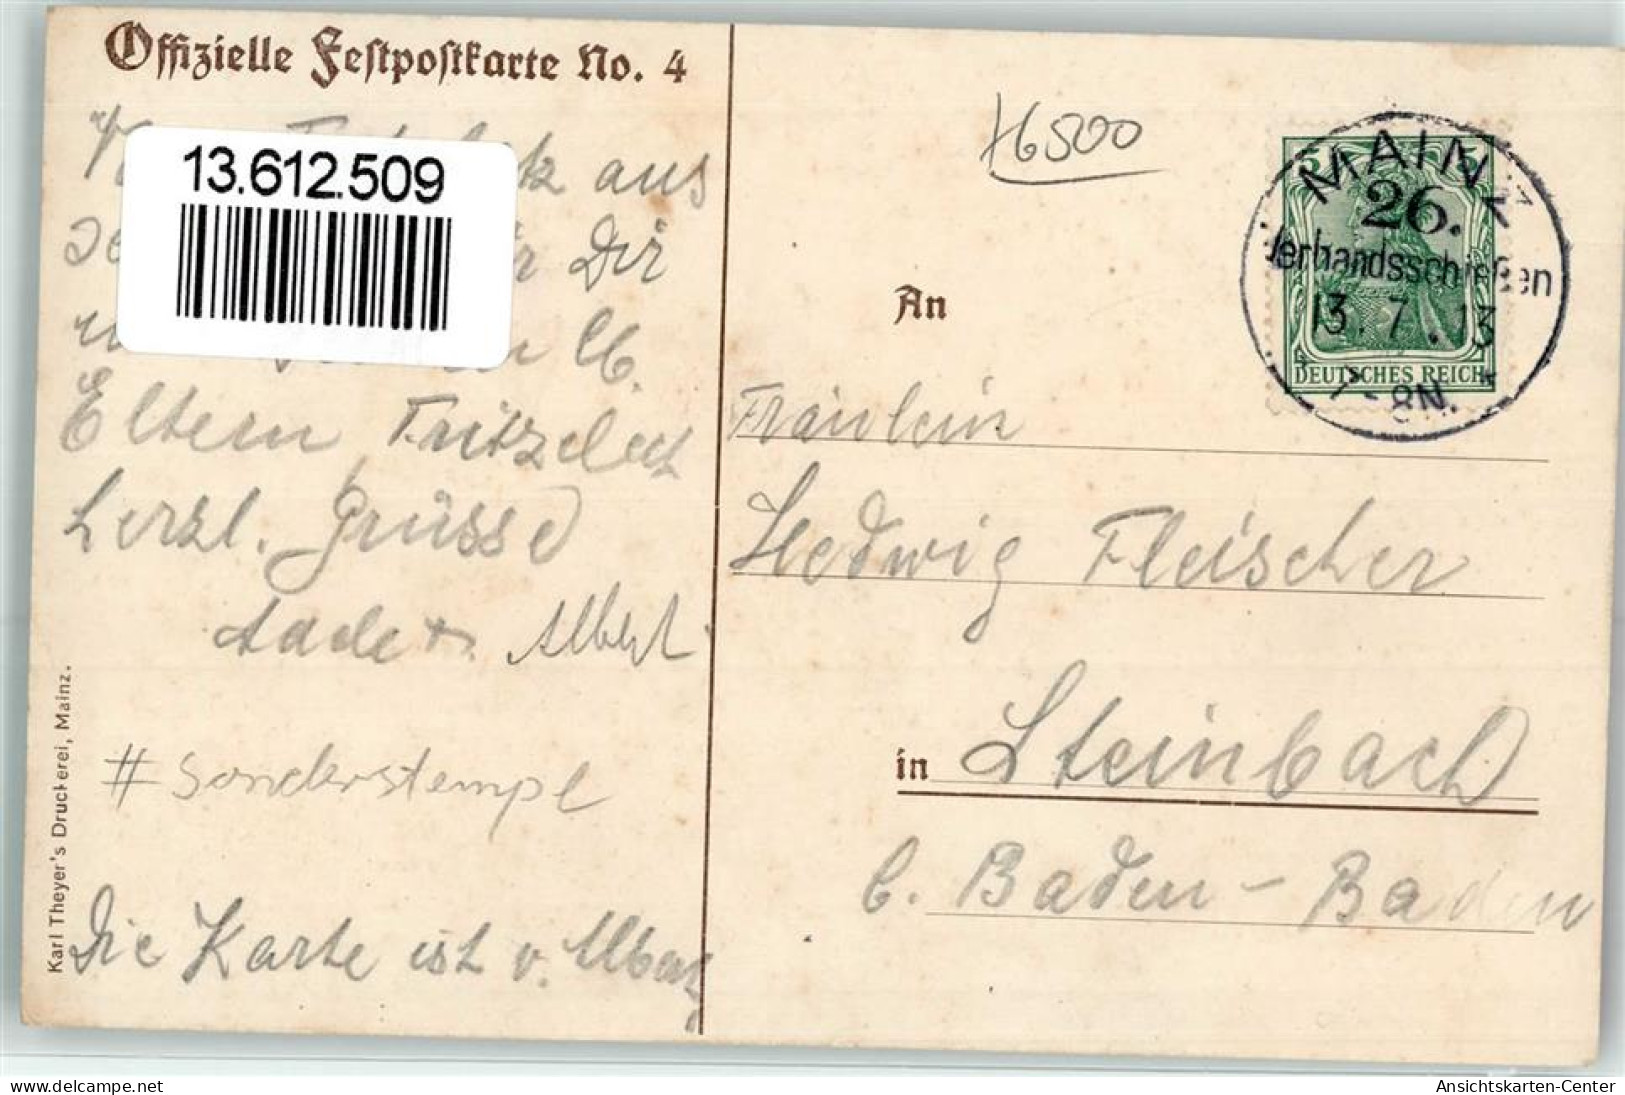 Offizielle Festpostkarte No. 4
13.612.509
aus
Dir
lb.
Eltern
herzl. Grüsse
Albert
# Sonderstempel
Die Karte ist v. Albert
Karl Theyer's Druckerei, Mainz.
H6500
MAINZ
26.
Verbandsschiessen
13.7.13
7-8N.
5 5
DEUTSCHES REICH
An
Fräulein
Hedwig Fleischer
in Steinbach
b. Baden-Baden
delcampe.net
Ansichtskarten-Center